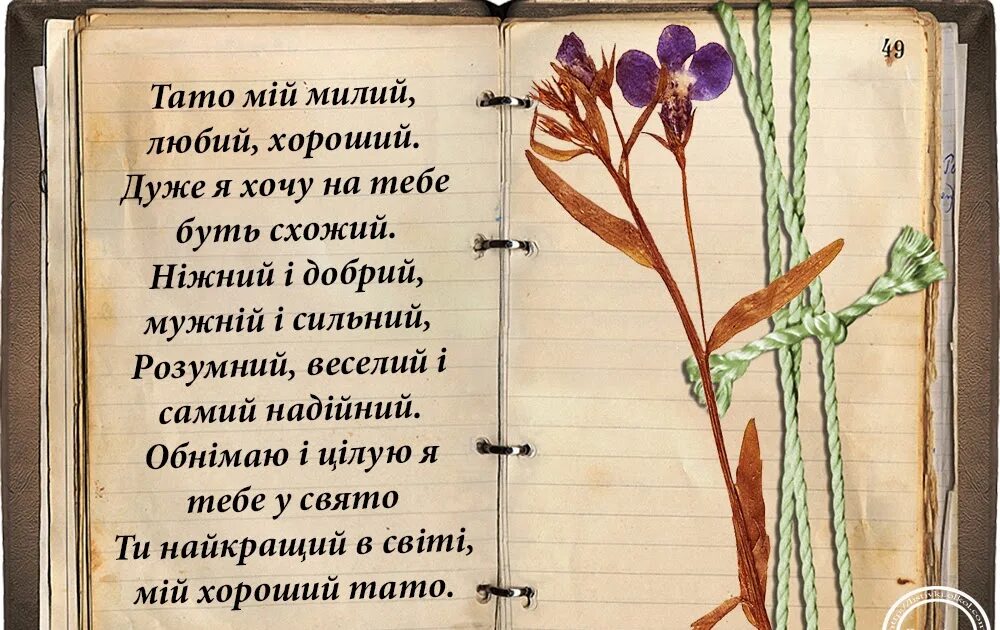 Тато мій милий,
любий, хороший.
Дуже я хочу на тебе
буть схожий.
Ніжний і добрий,
мужній і сильний,
Розумний, веселий і
самий надійний.
Обнімаю і цілую я
тебе у свято
Ти найкращий в світі,
мій хороший тато.
49